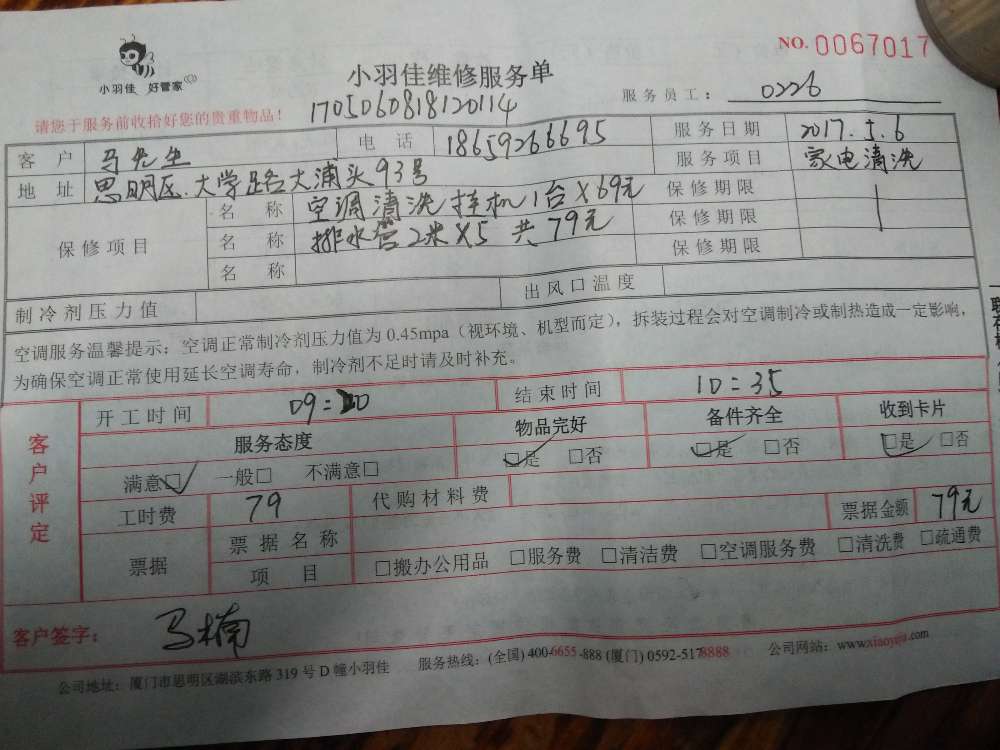 NO. 0067017
小羽佳 好管家
小羽佳维修服务单
请您于服务前收拾好您的贵重物品！
170506081812​0114
服务员工： 0226
客户 马先生 电话 18659266695 服务日期 2017.5.6
地址 思明区.大学路大浦头93号 服务项目 家电清洗
保修项目 名称 空调清洗挂机1台×69元 保修期限
名称 排水管2米×5 共79元 保修期限
名称 保修期限
制冷剂压力值 出风口温度
空调服务温馨提示：空调正常制冷剂压力值为 0.45mpa（视环境、机型而定），拆装过程会对空调制冷或制热造成一定影响，
为确保空调正常使用延长空调寿命，制冷剂不足时请及时补充。
客户评定
开工时间 结束时间 10:35
服务态度 物品完好 备件齐全 收到卡片
满意□ 一般□ 不满意□ □是 □否 □是 □否 □是 □否
工时费 79 代购材料费
票据 票据名称 票据金额 79元
项目 □搬办公用品 □服务费 □清洁费 □空调服务费 □清洗费 □疏通费
客户签字： 马楠
公司地址：厦门市思明区湖滨东路 319 号 D 幢小羽佳 服务热线：(全国) 400-6655-888 (厦门) 0592-5178888 公司网站：www.xiaoyujia.com